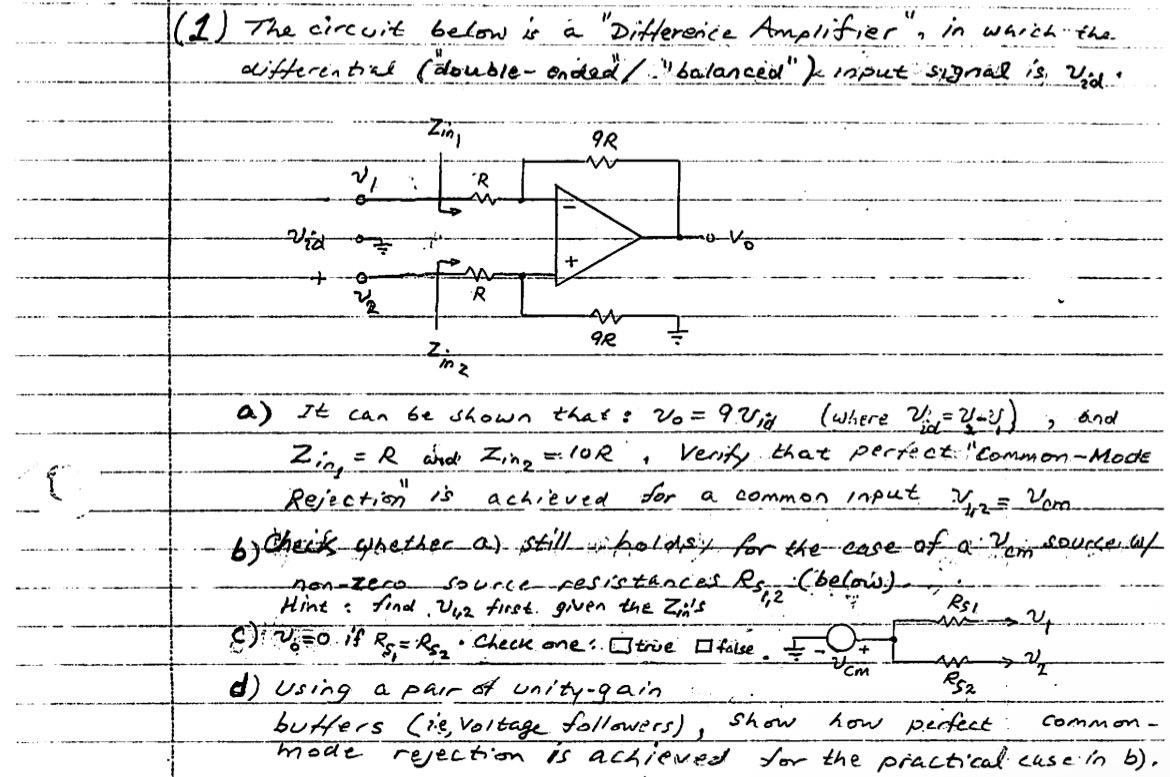 (1) The circuit below is a "Difference Amplifier", in which the
differential ("double-ended"/"balanced") input signal is v_id.
Z_in1
9R
v_1
R
-
- v_id
V_o
+
+
v_2
R
9R
Z_in2
a) It can be shown that: v_o = 9 v_id (where v_id = v_2 - v_1), and
Z_in1 = R and Z_in2 = 10R. Verify that perfect "Common-Mode
Rejection" is achieved for a common input v_1,2 = v_cm
b) Check whether a) still holds, for the case of a v_cm source w/
non-zero source resistances R_S1,2 (below).
Hint: find v_1,2 first given the Z_in's
R_S1
v_1
c) v_o = 0 if R_S1 = R_S2. Check one: □ true □ false.
- +
v_cm
v_2
R_S2
d) Using a pair of unity-gain
buffers (ie, voltage followers), show how perfect common-
mode rejection is achieved for the practical case in b).